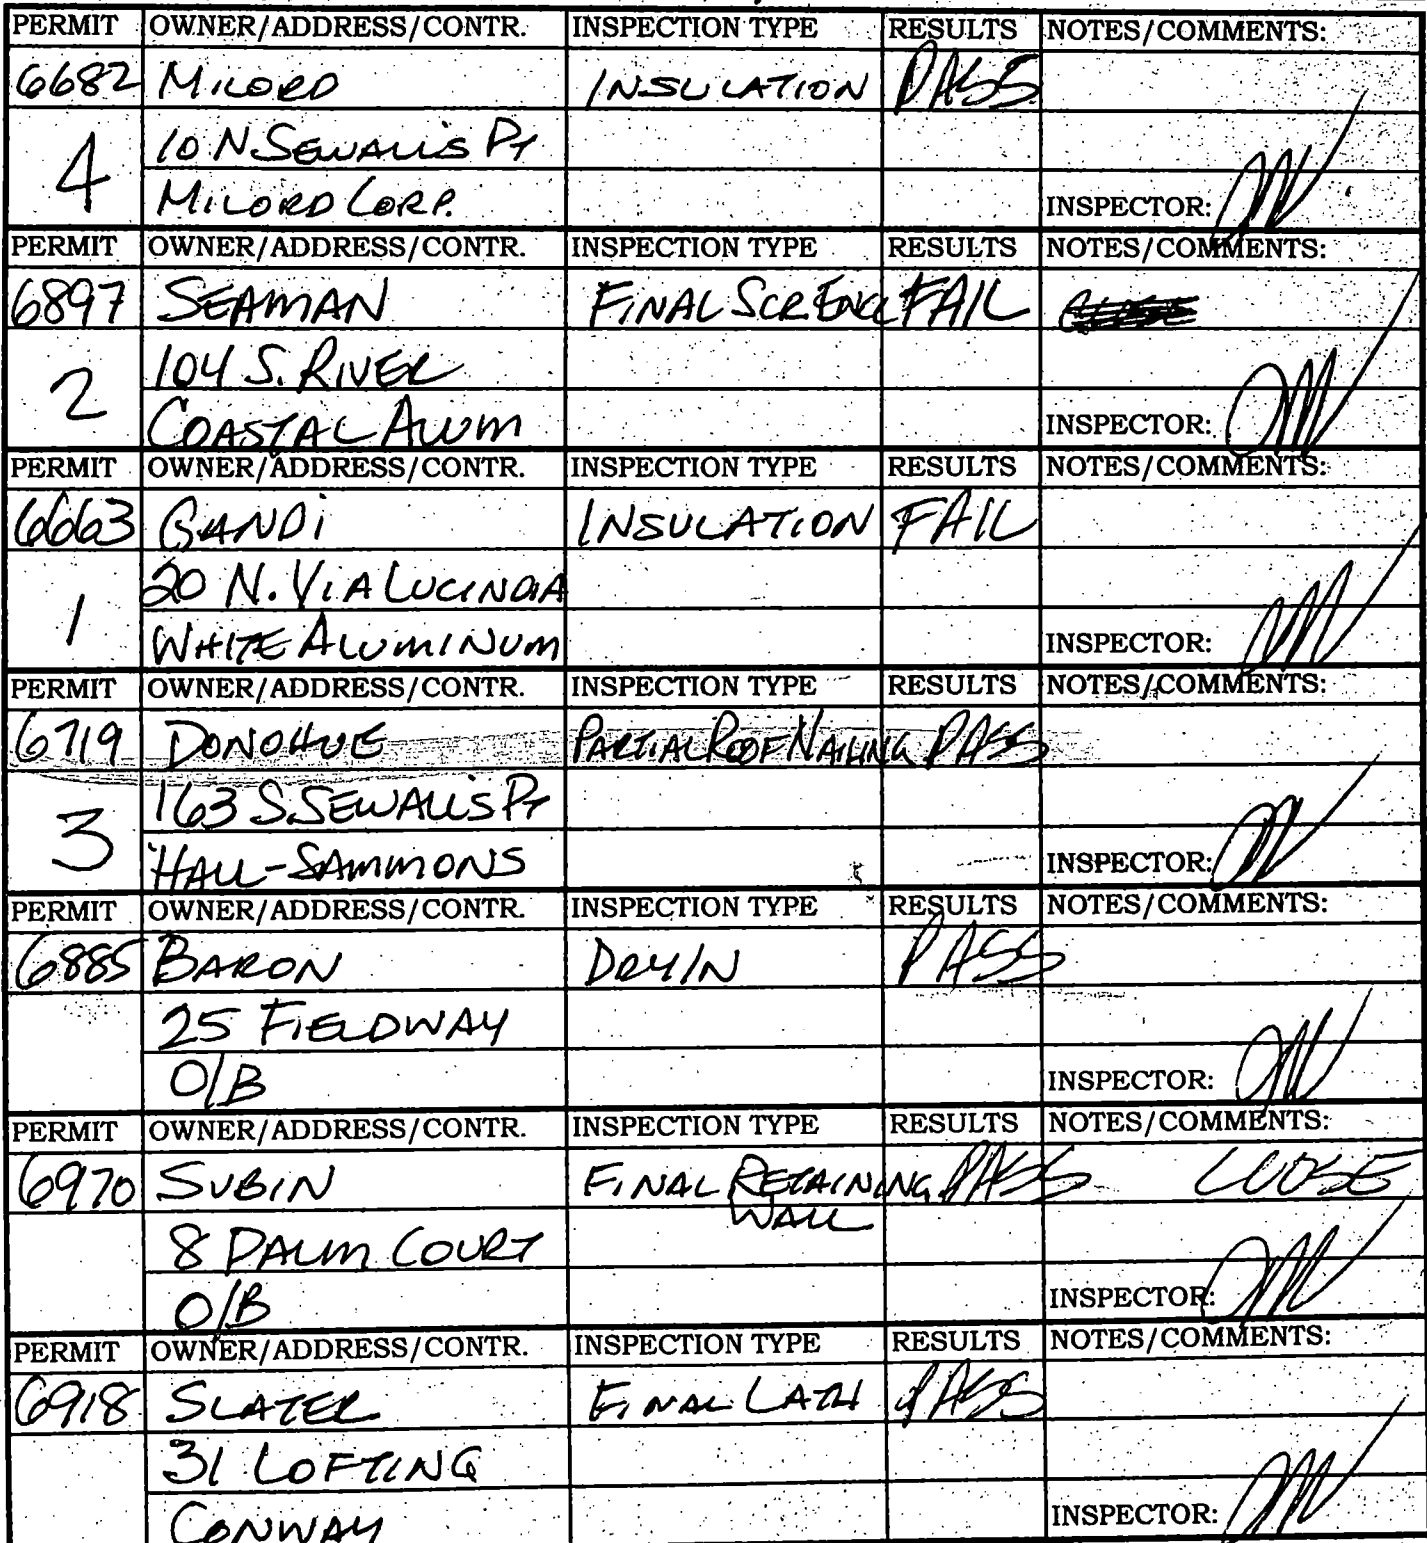 PERMIT OWNER/ADDRESS/CONTR. INSPECTION TYPE RESULTS NOTES/COMMENTS:
6682 MILORD INSULATION PASS
4 10 N SEWALL'S PT
MILORD CORP. INSPECTOR:
PERMIT OWNER/ADDRESS/CONTR. INSPECTION TYPE RESULTS NOTES/COMMENTS:
6897 SEAMAN FINAL SCR ENCL FAIL
2 104 S. RIVER
COASTAL ALUM INSPECTOR:
PERMIT OWNER/ADDRESS/CONTR. INSPECTION TYPE RESULTS NOTES/COMMENTS:
6663 GANDI INSULATION FAIL
1 20 N. VIA LUCINDIA
WHITE ALUMINUM INSPECTOR:
PERMIT OWNER/ADDRESS/CONTR. INSPECTION TYPE RESULTS NOTES/COMMENTS:
6719 DONOHUE PARTIAL ROOF NAILING PASS
3 163 S. SEWALL'S PT
HALL-SAMMONS INSPECTOR:
PERMIT OWNER/ADDRESS/CONTR. INSPECTION TYPE RESULTS NOTES/COMMENTS:
6885 BARON DRY IN PASS
25 FIELDWAY
O/B INSPECTOR:
PERMIT OWNER/ADDRESS/CONTR. INSPECTION TYPE RESULTS NOTES/COMMENTS:
6970 SUBIN FINAL RETAINING PASS CLOSE
WALL
8 PALM COURT
O/B INSPECTOR:
PERMIT OWNER/ADDRESS/CONTR. INSPECTION TYPE RESULTS NOTES/COMMENTS:
6918 SLATER FINAL LATH PASS
31 LOFTING
CONWAY INSPECTOR: